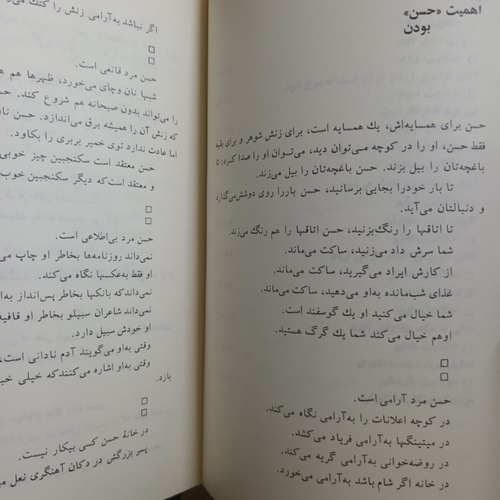 اهمیت «حسن»
بودن
حسن برای همسایه‌اش، یك همسایه است، برای زنش شوهر و برای بقیه
فقط حسن، او را در کوچه می‌توان دید، می‌توان او را صدا کرد: تا
باغچه‌تان را بیل بزند. حسن باغچه‌تان را بیل می‌زند.
تا بار خودرا بجایی برسانید، حسن باررا روی دوشش می‌گذارد
و دنبالتان می‌آید.
تا اتاقها را رنگ‌بزنید، حسن اتاقها را هم رنگ می‌زند.
شما سرش داد می‌زنید، ساکت می‌ماند.
از کارش ایراد می‌گیرید، ساکت می‌ماند.
غذای شب‌مانده به‌او می‌دهید، ساکت می‌ماند.
شما خیال می‌کنید او یك گوسفند است.
اوهم خیال می‌کند شما یك گرگ هستید.
حسن مرد آرامی است.
در کوچه اعلانات را به‌آرامی نگاه می‌کند.
در میتینگها به‌آرامی فریاد می‌کشد.
در روضه‌خوانی به‌آرامی گریه می‌کند.
در خانه اگر شام باشد به‌آرامی می‌خورد.
اگر نباشد به‌آرامی زنش را کتك
حسن مرد قانعی است.
شبها نان وچای می‌خورد، ظهرها هم
را می‌تواند بدون صبحانه هم شروع کند.
که زنش آن را همیشه برق می‌اندازد. حسن
اما عادت ندارد توی خمیر بربری را بکاود.
حسن معتقد است سکنجبین چیز خوبی
و معتقد است‌که دیگر سکنجبین خوب
حسن مرد بی‌اطلاعی است.
نمی‌داند روزنامه‌ها بخاطر او چاپ
او فقط به‌عکسها نگاه می‌کند.
نمی‌داندکه بانکها بخاطر پس‌انداز
نمی‌داند شاعران سبیلو بخاطر او
او خودش سبیل دارد.
وقتی به‌او می‌گویند آدم نادانی است،
وقتی به‌او اشاره می‌کنندکه خیلی
بازد.
در خانهٔ حسن کسی بیکار نیست.
پسر بزرگش در دکان آهنگری نعل